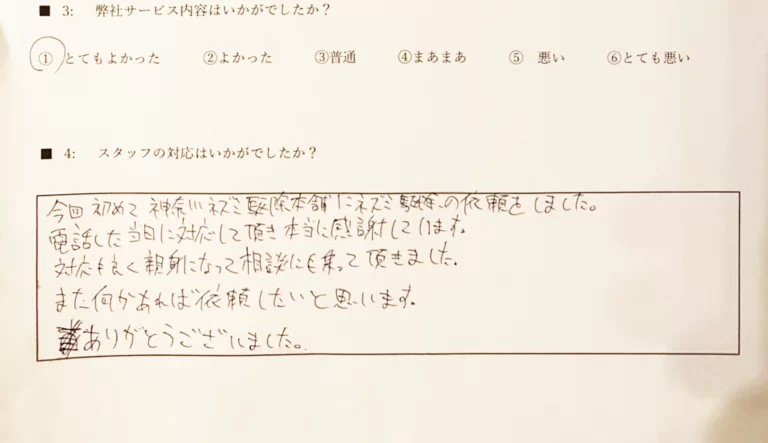 ■ 3: 弊社サービス内容はいかがでしたか?
① とてもよかった ②よかった ③普通 ④まあまあ ⑤ 悪い ⑥とても悪い
■ 4: スタッフの対応はいかがでしたか?
今回初めて神奈川ネズミ駆除本舗にネズミ駆除の依頼をしました。
電話した当日に対応して頂き本当に感謝しています。
対応も良く親身になって相談にも乗って頂きました。
また何かあれば依頼したいと思います。
ありがとうございました。